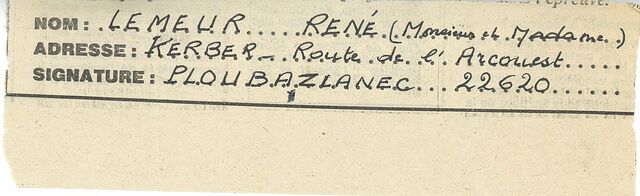 NOM : LEMEUR..... RENÉ. (Monsieur et Madame.)
ADRESSE : KERBER_ Route de l'Arcouest.....
SIGNATURE : PLOUBAZLANEC... 22620......